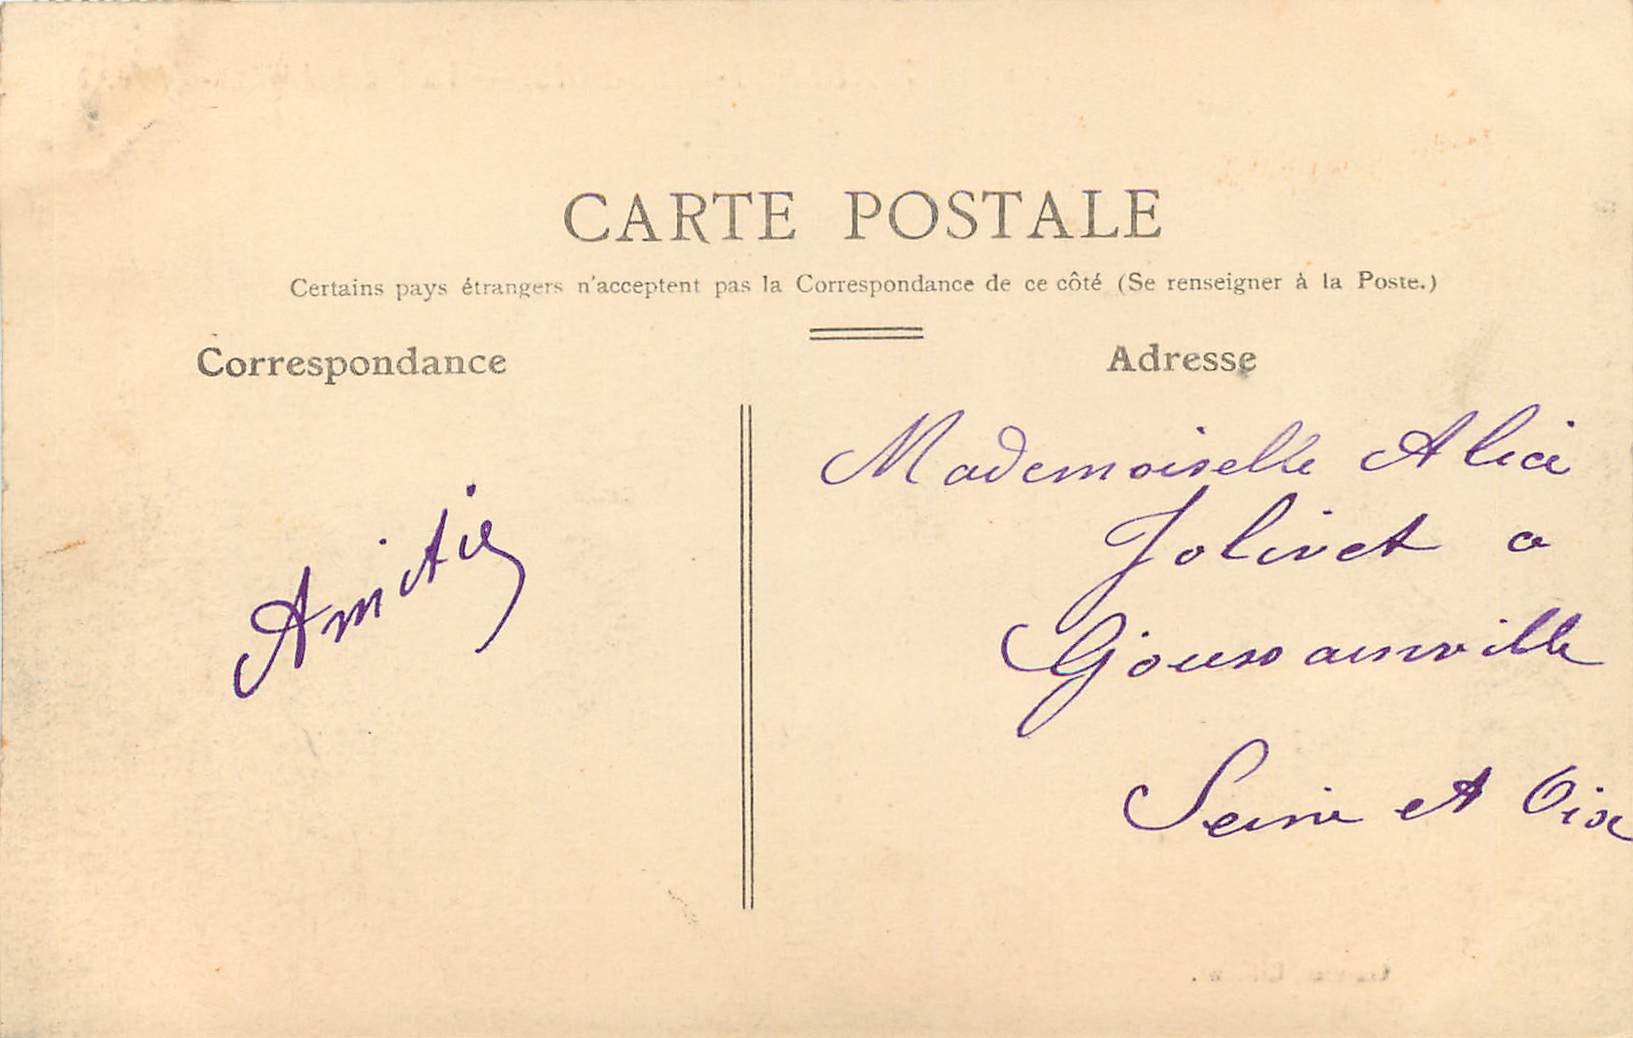 CARTE POSTALE
Certains pays étrangers n'acceptent pas la Correspondance de ce côté (Se renseigner à la Poste.)
Correspondance
Adresse
Amitié
Mademoiselle Alice
Jolivet a
Goussainville
Seine et Oise